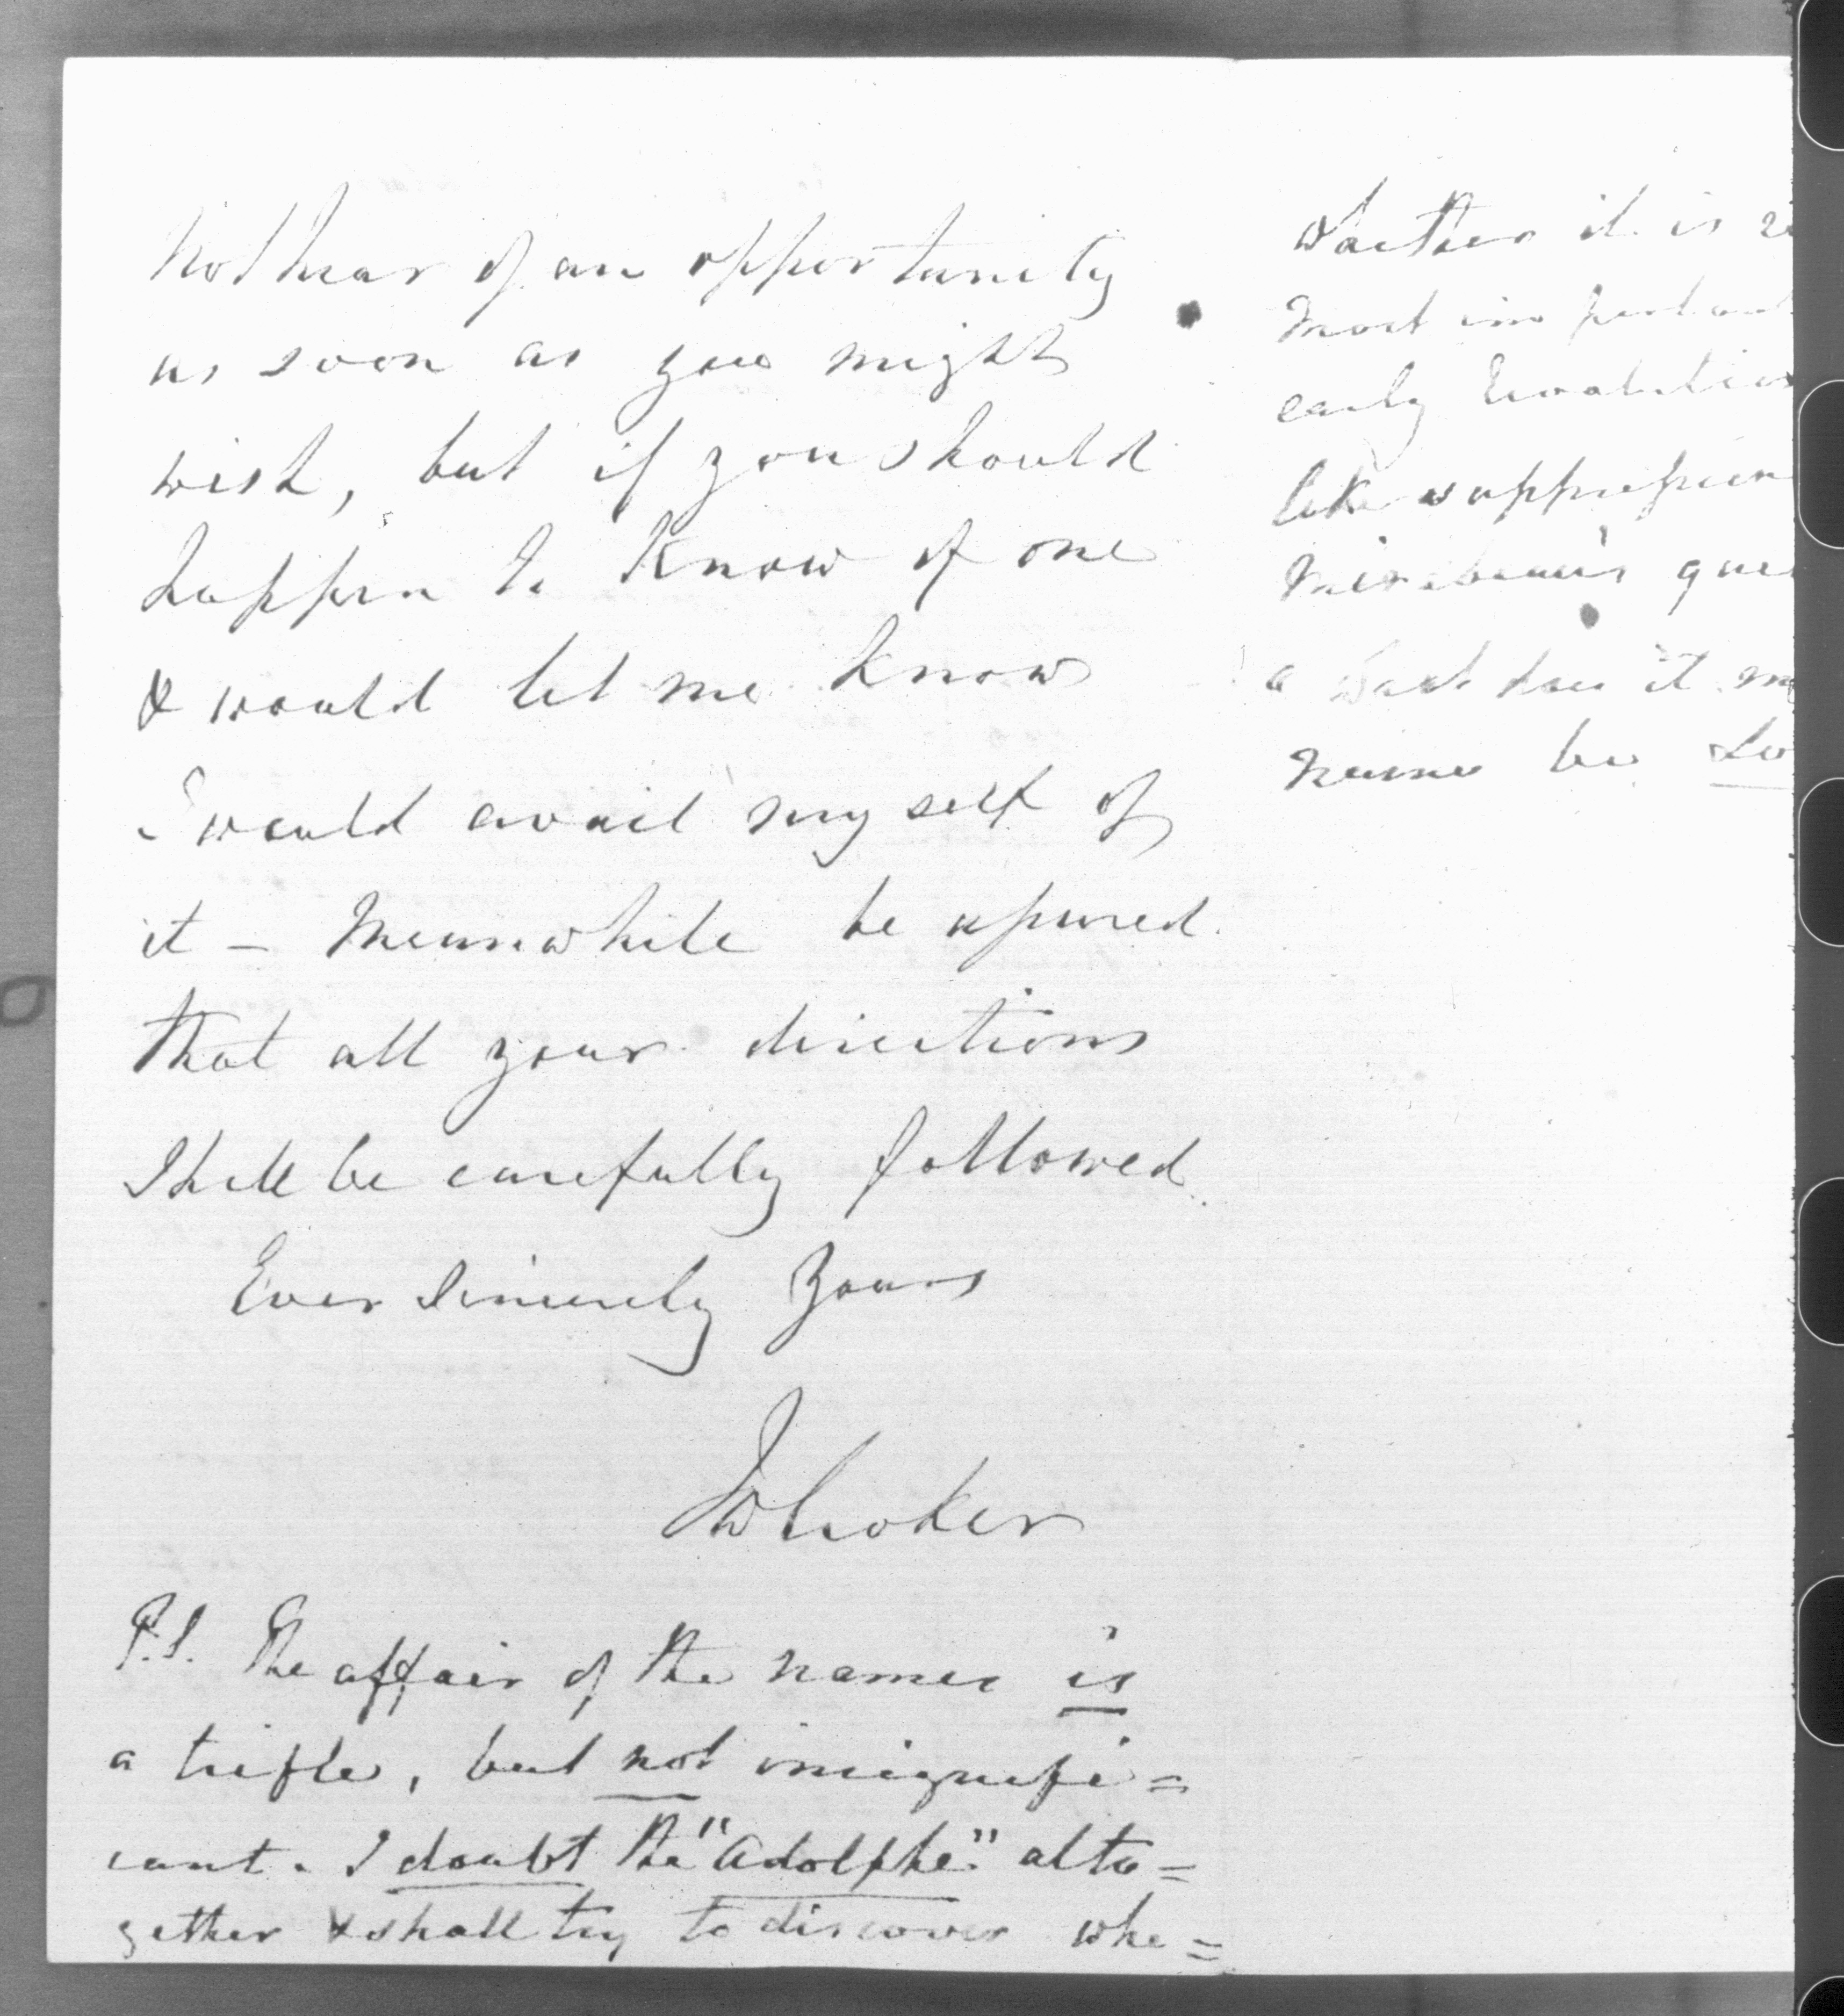 not hear of an opportunity
as soon as you might
wish, but if you should
happen to know of one
& would let me know
I would avail myself of
it – Meanwhile be assured
that all your directions
shall be carefully followed.
Ever Sincerely Yours
JWCroker
P.S. The affair of the names is
a trifle, but not insignifi=
cant. I doubt the "Adolphe" alto=
gether & shall try to discover whe=
whether it is
most important
early
like
Mirabeau's
a it
name be